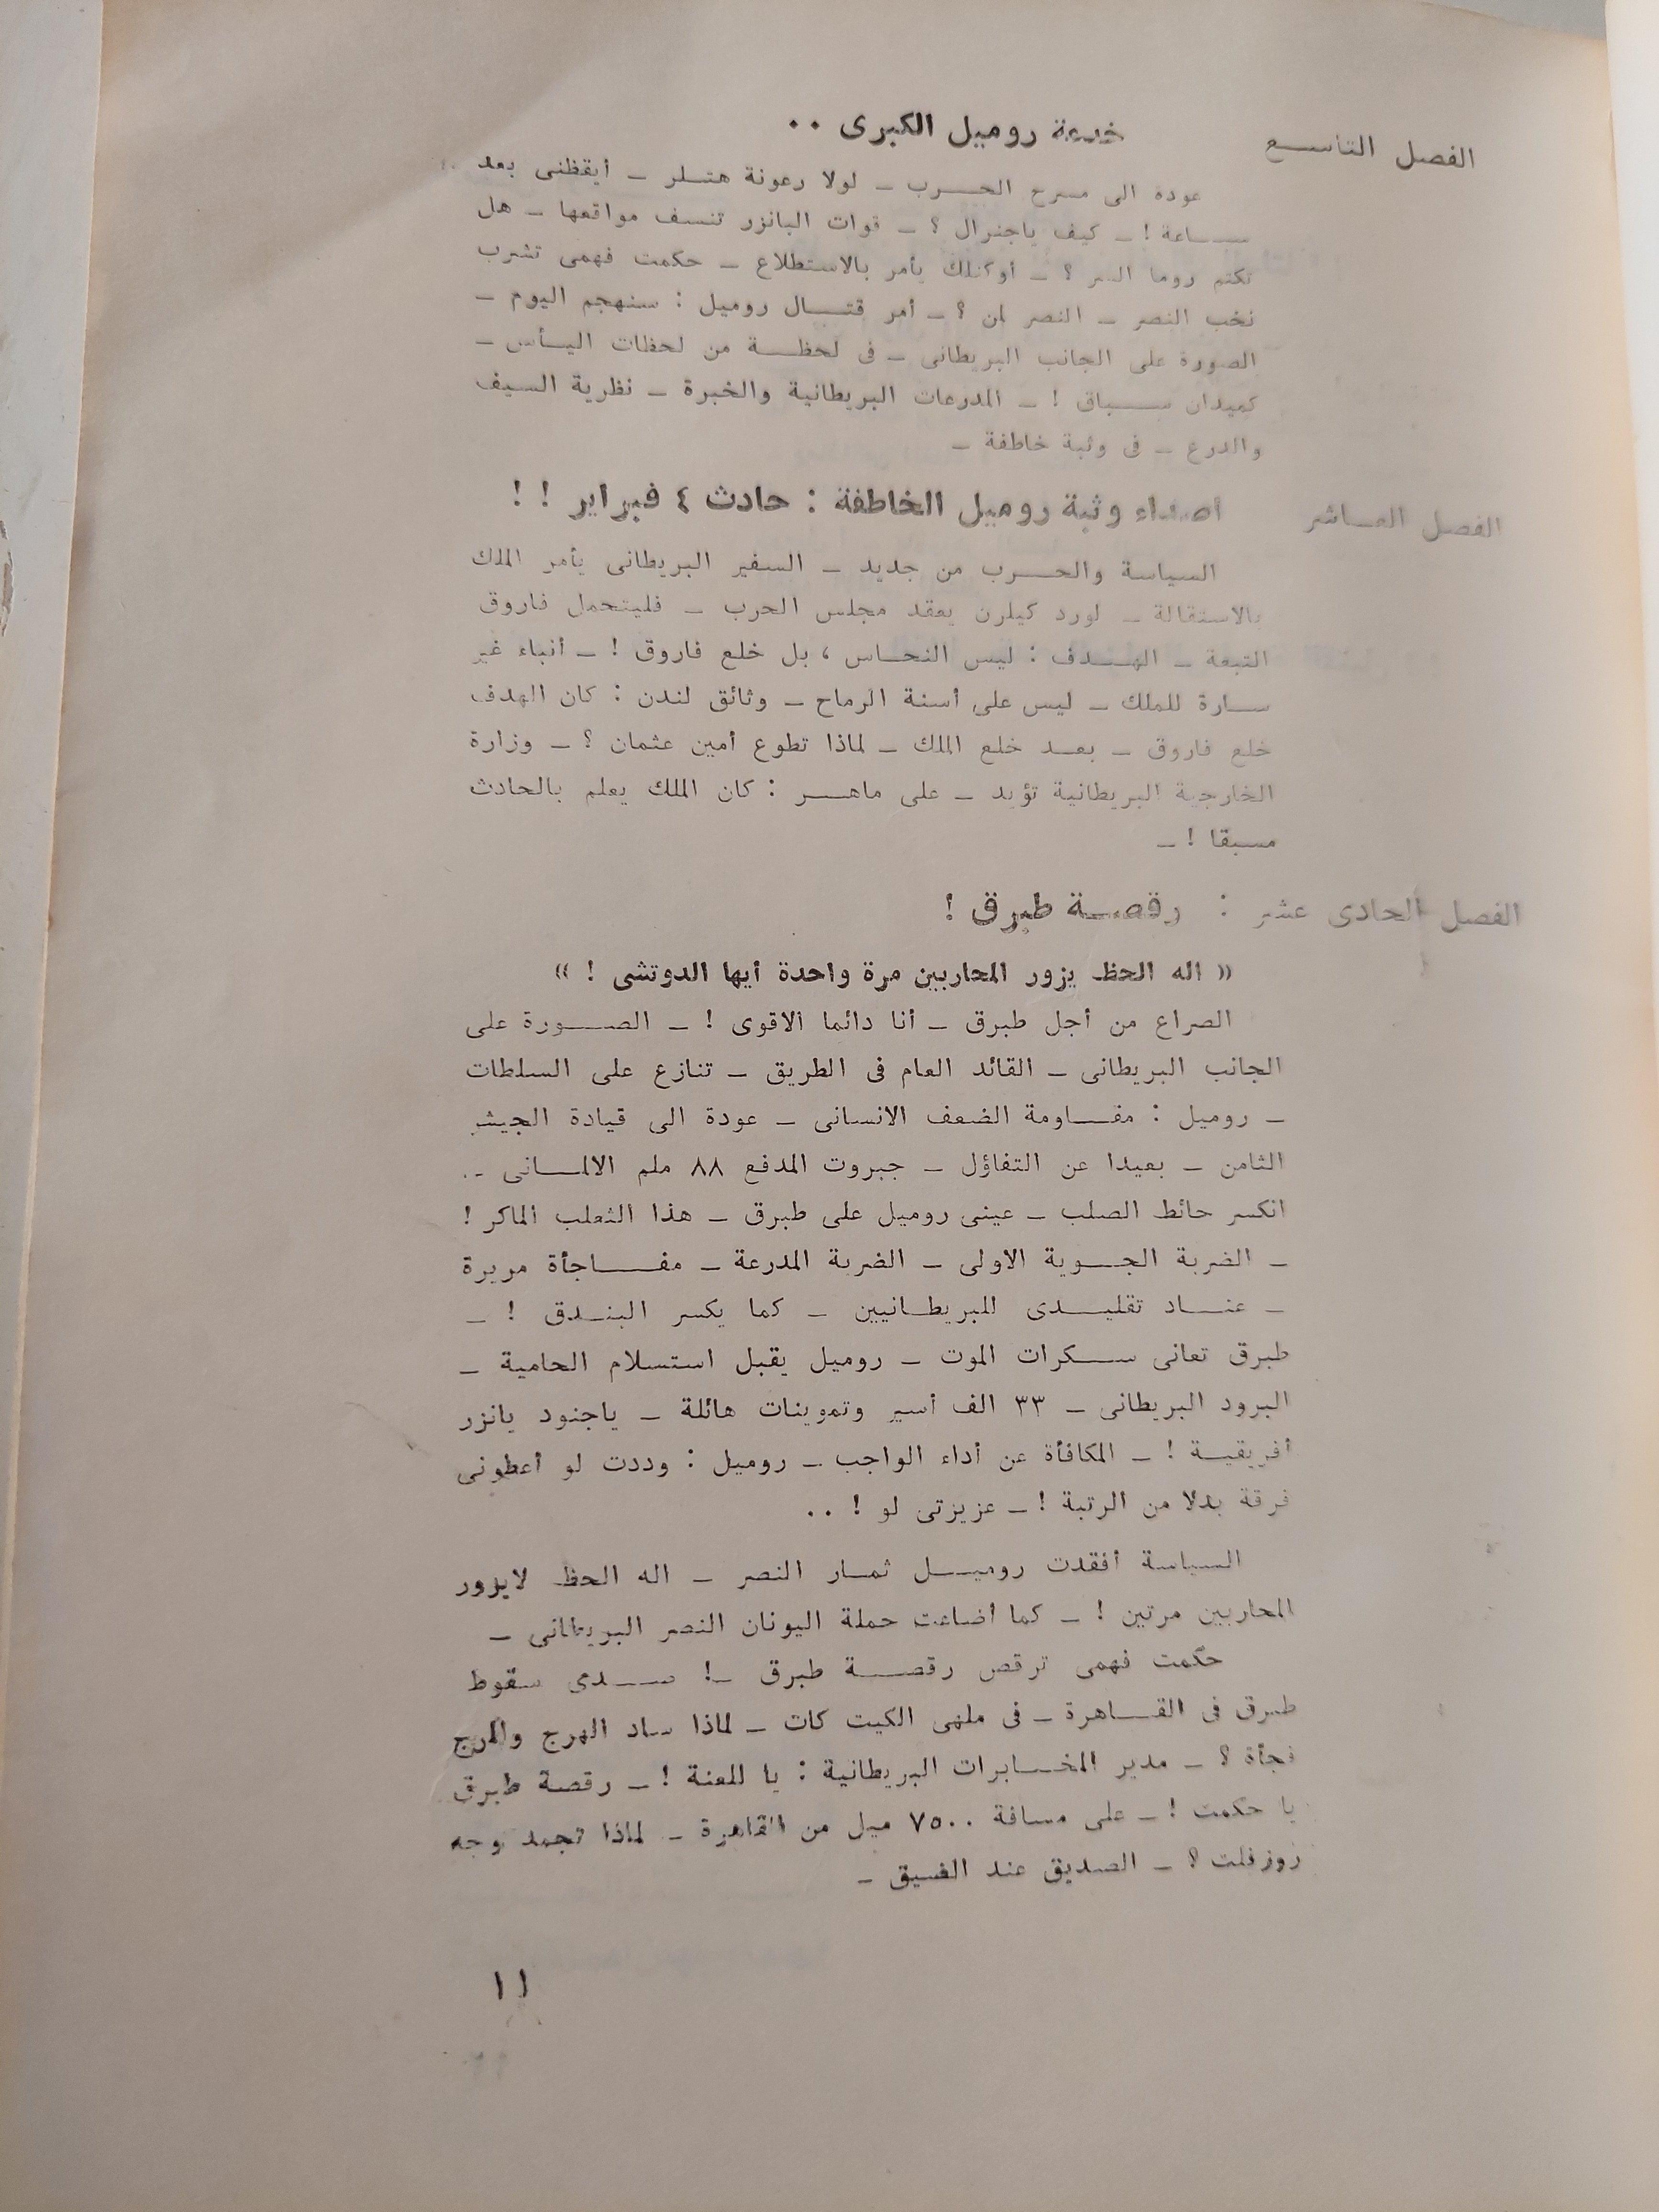 الفصل التاسع خدعة روميل الكبرى ٠٠
عودة الى مسرح الحرب - لولا رعونة هتلر - أيقظنى بعد
ساعة ! - كيف ياجنرال ؟ - قوات البانزر تنسف مواقعها - هل
تكتم روما السر ؟ - أوكنلك يأمر بالاستطلاع - حكمت فهمى تشرب
نخب النصر - النصر لمن ؟ - أمر قتال روميل : سنهجم اليوم -
الصورة على الجانب البريطانى - فى لحظة من لحظات اليأس -
كميدان سباق ! - المدرعات البريطانية والخبرة - نظرية السيف
والدرع - فى وثبة خاطفة -
الفصل العاشر أصداء وثبة روميل الخاطفة : حادث ٤ فبراير ! !
السياسة والحرب من جديد - السفير البريطانى يأمر الملك
بالاستقالة - لورد كيلرن يعقد مجلس الحرب - فليتحمل فاروق
التبعة - الهدف : ليس النحاس ، بل خلع فاروق ! - أنباء غير
سارة للملك - ليس على أسنة الرماح - وثائق لندن : كان الهدف
خلع فاروق - بعد خلع الملك - لماذا تطوع أمين عثمان ؟ - وزارة
الخارجية البريطانية تؤيد - على ماهر : كان الملك يعلم بالحادث
مسبقا ! -
الفصل الحادى عشر : رقصة طبرق !
« اله الحظ يزور المحاربين مرة واحدة أيها الدوتشى ! »
الصراع من أجل طبرق - أنا دائما الاقوى ! - الصورة على
الجانب البريطانى - القائد العام فى الطريق - تنازع على السلطات
- روميل : مقاومة الضعف الانسانى - عودة الى قيادة الجيش
الثامن - بعيدا عن التفاؤل - جبروت المدفع ٨٨ ملم الالمانى -
انكسر حائط الصلب - عينى روميل على طبرق - هذا الثعلب الماكر !
- الضربة الجوية الاولى - الضربة المدرعة - مفاجأة مريرة
- عناد تقليدى للبريطانيين - كما يكسر البندق ! -
طبرق تعانى سكرات الموت - روميل يقبل استسلام الحامية -
البرود البريطانى - ٣٣ الف أسير وتموينات هائلة - ياجنود بانزر
أفريقية ! - المكافأة عن أداء الواجب - روميل : وددت لو أعطونى
فرقة بدلا من الرتبة ! - عزيزتى لو ! ٠٠
السياسة أفقدت روميل ثمار النصر - اله الحظ لايزور
المحاربين مرتين ! - كما أضاعت حملة اليونان النصر البريطانى -
حكمت فهمى ترقص رقصة طبرق -! صدى سقوط
طبرق فى القاهرة - فى ملهى الكيت كات - لماذا ساد الهرج والمرج
فجأة ؟ - مدير المخابرات البريطانية : يا للعنة ! - رقصة طبرق
يا حكمت ! - على مسافة ٧٥٠٠ ميل من القاهرة - لماذا تجمد وجه
روزفلت ؟ - الصديق عند الضيق -
١١